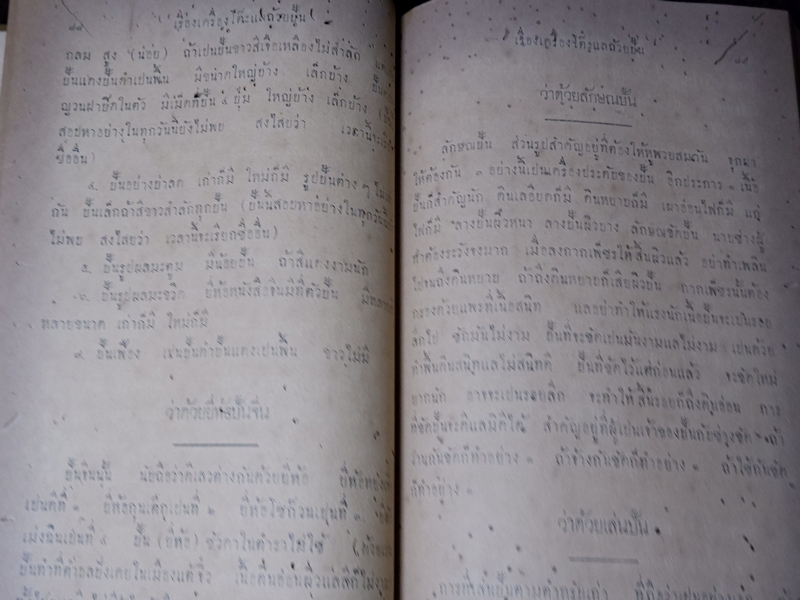 ๘๘ เรื่องเครื่องโต๊ะแลถ้วยปั้น
กลม สูง (น้อย) ถ้าเปนปั้นขาวสีเจือเหลืองไม่สำลัก แต่
ปั้นแดงปั้นดำเปนพื้น มีขนาดใหญ่บ้าง เล็กบ้าง ปั้น
ญวนฝายึดในตัว มีเม็ดที่ปั้น ๔ ปุ่ม ใหญ่บ้าง เล็กบ้าง
สอบหาอย่างในทุกวันนี้ยังไม่พบ สงไสยว่า เวลานี้จะเรียก
ชื่ออื่น)
๔ ปั้นอย่างย่าลด เก่าก็มี ใหม่ก็มี รูปปั้นต่าง ๆ
กัน ปั้นเล็กถ้าสีขาวสำลักทุกปั้น (ปั้นนี้สอบหาอย่างในทุกวันนี้
ไม่พบ สงไสยว่า เวลานี้จะเรียกชื่ออื่น)
๕ ปั้นรูปผลมะตูม มีน้อยปั้น ถ้าสีแดงงามนัก
๖ ปั้นรูปผลมะขวิด ยี่ห้อหนังสือจีนมีที่ตัวปั้น
หลายขนาด เก่าก็มี ใหม่ก็มี
๙ ปั้นเฟือง เช่นปั้นดำปั้นแดงเปนพื้น ขาวไม่มี
ว่าด้วยยี่ห้อปั้นจีน
ปั้นจีนนั้น นับถือว่าดีเลวต่างกันด้วยยี่ห้อ
เปนดีที่ ๑ ยี่ห้อกุนเต๊กเปนที่ ๒ ยี่ห้อโซก๊วนเปนที่ ๓
เม่งฉินเปนที่ ๔ ปั้น (ยี่ห้อ) ชัวดาในตำราไม่ใช้
ปั้นทำที่ตำบลยังเคยในเมืองแต้จิ๋ว เนื้อดินอ่อนผิวแลสีก็ไม่งาม
เรื่องเครื่องโต๊ะแลถ้วยปั้น
ว่าด้วยลักษณปั้น
ลักษณปั้น ส่วนรูปสำคัญอยู่ที่ต้องให้หูพวยสมกัน
ให้ต้องกัน ๑ อย่างนี้เปนเครื่องประดับของปั้น อีกประการ ๑ เนื้อ
ปั้นก็สำคัญนัก ดินเลอียดก็มี ดินหยาบก็มี เผาอ่อนไฟก็มี แก่
ไฟก็มี ลางปั้นผิวหนา ลางปั้นผิวบาง ลักษณขัดปั้น นายช่างผู้
ทำต้องระวังจงมาก เมื่อลงกากเพ็ชรให้สิ้นผิวแล้ว อย่าทำเพลิน
ไปจนถึงดินหยาบ ถ้าถึงดินหยาบก็เสียผิวปั้น กากเพ็ชรนั้นต้อง
กรองด้วยแพรที่เนื้อสนิท แลอย่าทำให้แรงนักเนื้อปั้นจะเปนรอย
ลึกไป ขัดมันไม่งาม ปั้นที่จะขัดเปนมันงามแลไม่งาม เปนด้วย
ทำพื้นดินสนิทแลไม่สนิทดี ปั้นที่ขัดไว้แต่ก่อนแล้ว จะขัดใหม่
ยากนัก อาจจะเปนรอยลึก จะทำให้สิ้นรอยก็ถึงดินอ่อน การ
ที่ขัดปั้นจะดีแลมิดีใด้ สำคัญอยู่ที่ผู้เปนเจ้าของปั้นกับช่างขัด ถ้า
วานกันขัดก็ทำอย่าง ๑ ถ้าจ้างกันขัดก็ทำอย่าง ๑ ถ้าใช้กันขัด
ก็ทำอย่าง ๑
ว่าด้วยเล่นปั้น